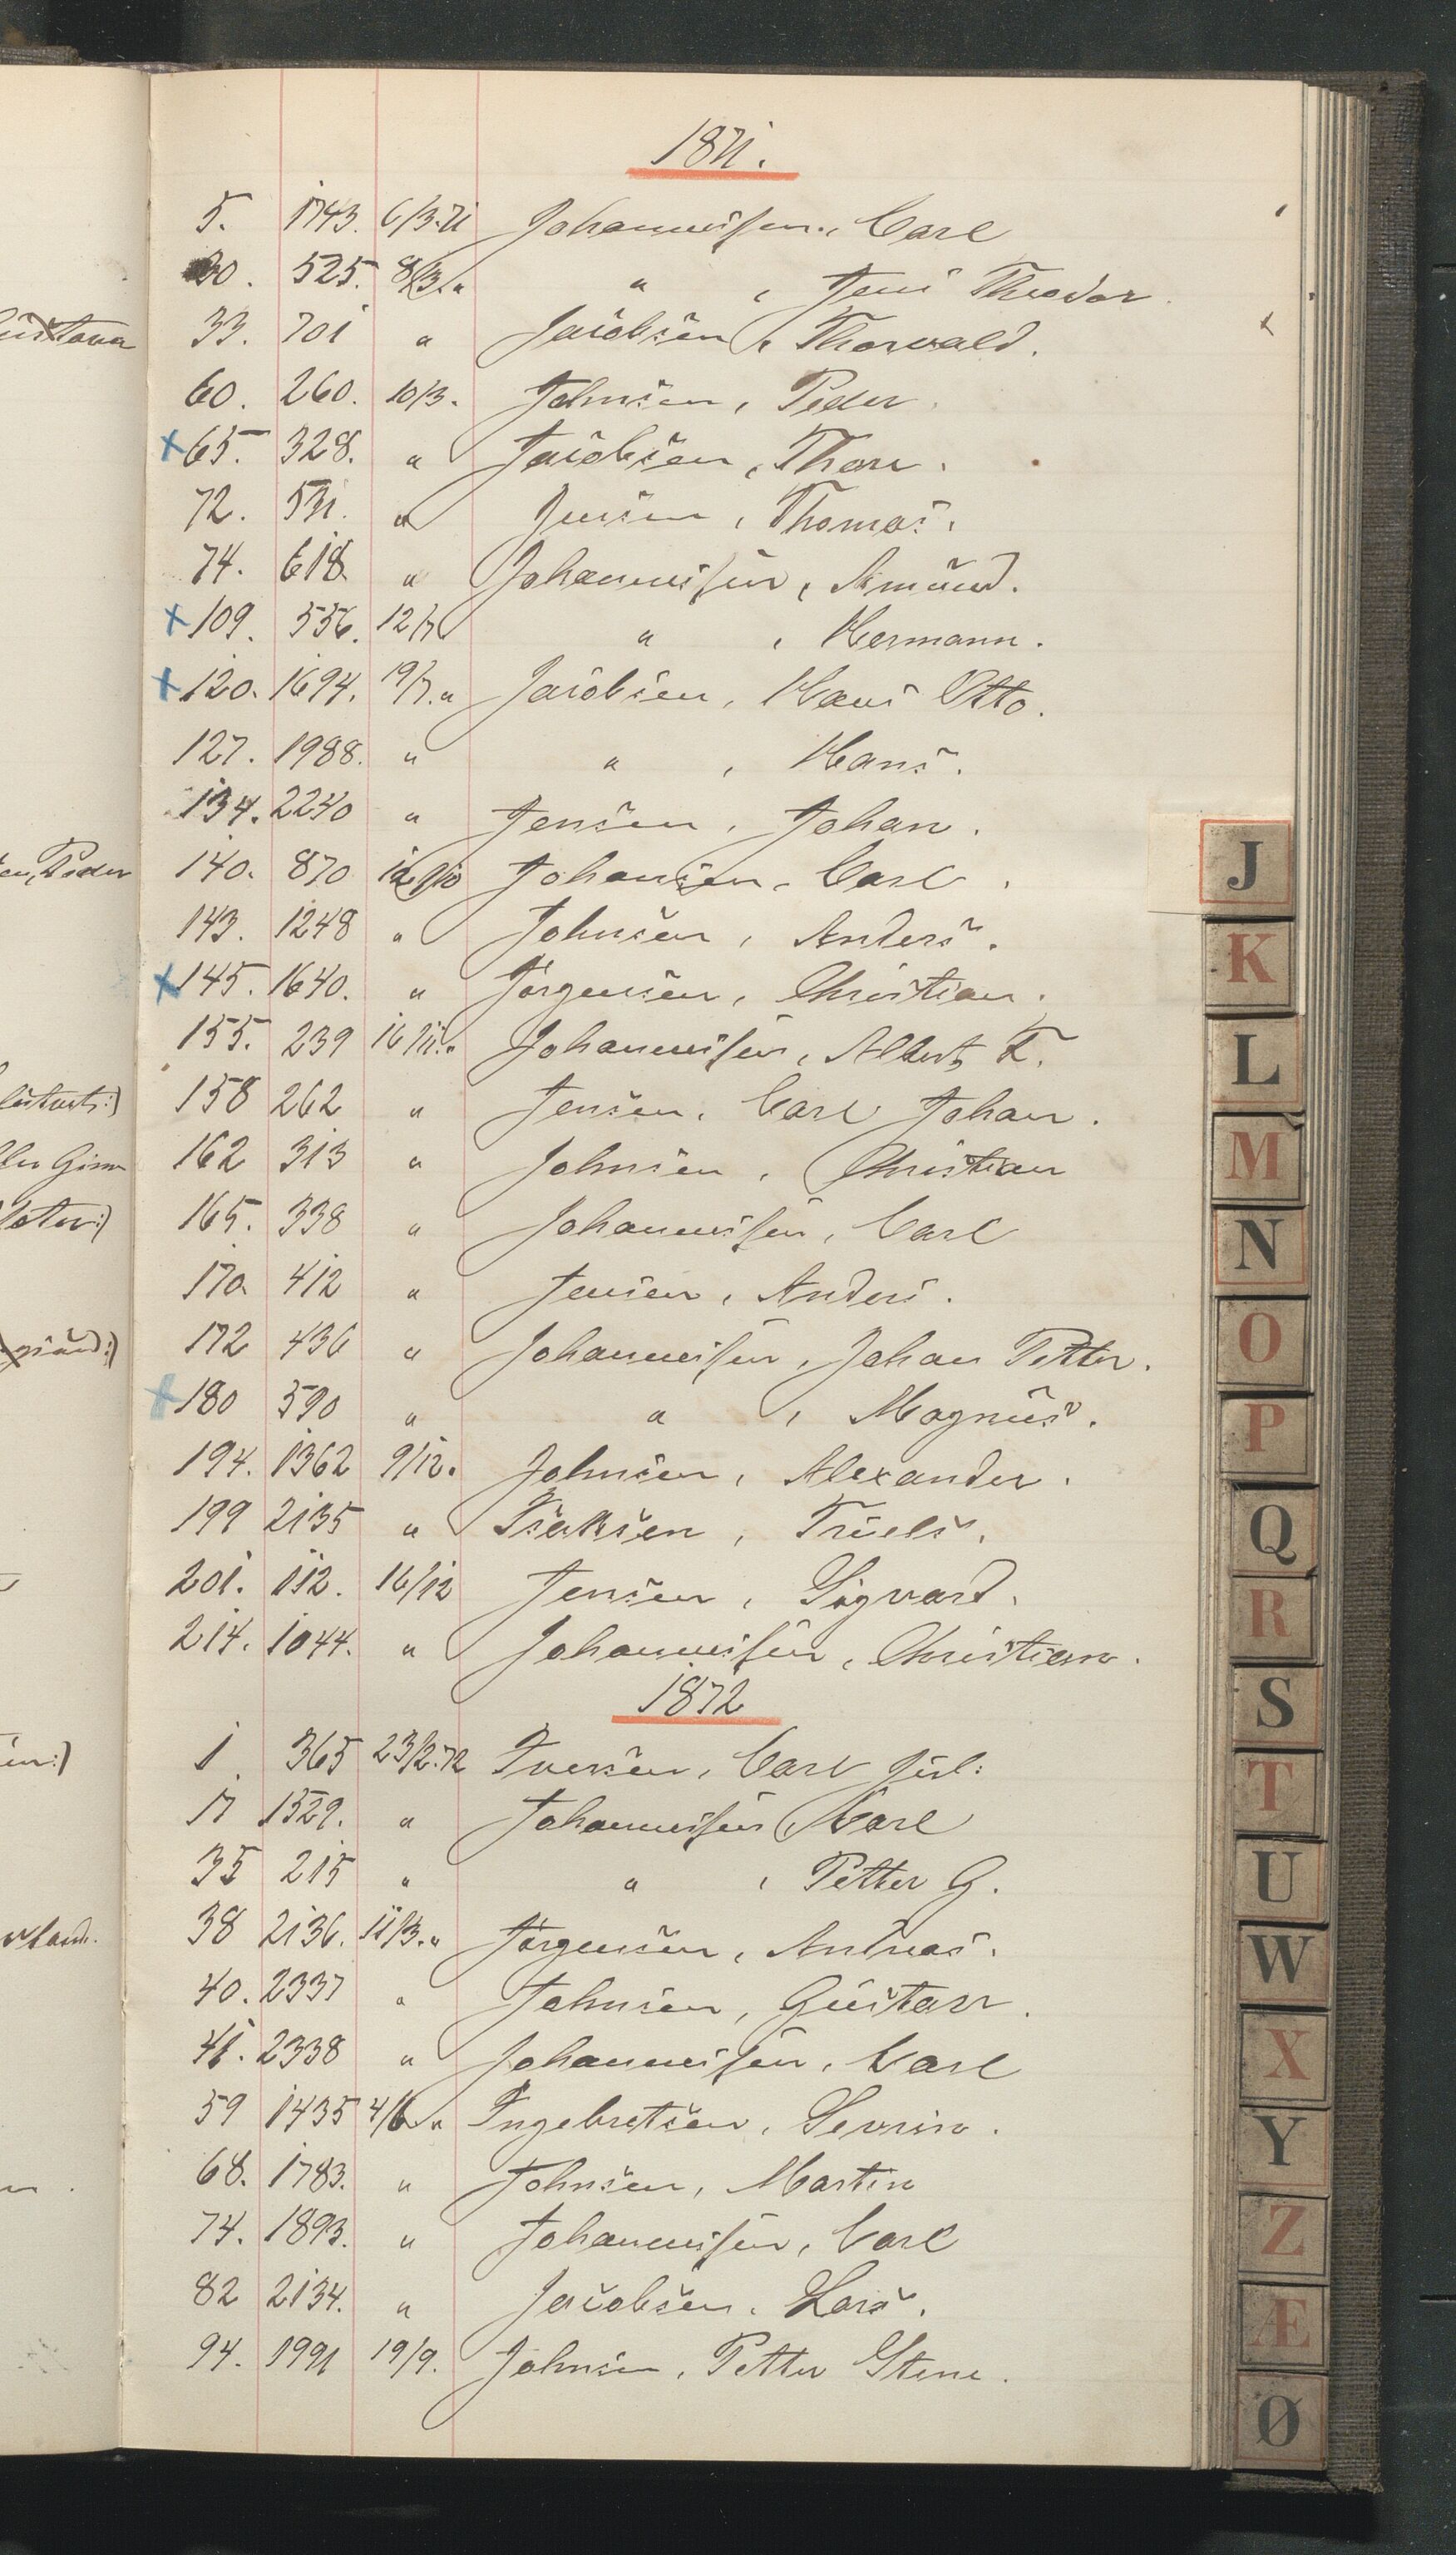 1871.
5. 1743. 6/3.71 Johannessen, Carl
30. 525. 8/3. " " , Jens Theodor.
33. 701 " Jacobsen, Thorvald.
60. 260. 10/3. Johnsen, Peder.
x 65. 328. " Jacobsen, Thore.
72. 531. " Jensen, Thomas.
74. 618. " Johannessen, Amund.
x 109. 556. 12/7 " , Hermann.
x 120. 1694. 19/7. " Jacobsen, Hans Otto.
127. 1988. " " , Hans.
134. 2240 " Jensen, Johan.
140. 870 12/10 Johansen, Carl.
143. 1248 " Johnsen, Anders.
x 145. 1640. " Jørgensen, Christian.
155. 239 16/11. " Johannessen, Albert F.
158 262 " Jensen, Carl Johan.
162 313 " Johnsen, Christian
165. 338 " Johannessen, Carl
170. 412 " Jensen, Anders.
172 436 " Johannessen, Johan Petter.
x 180 590 " " , Magnus.
194. 1362 9/12. Johnsen, Alexander.
199 2135 " Isaksen, Truels.
201. 112. 16/12 Jensen, Sigvard.
214. 1044. " Johannessen, Christian.
1872
1 365 23/2.72 Iversen, Carl Jul:
17 1529. " Johannessen, Carl
35 215 " " , Petter G.
38 2136. 11/3. " Jørgensen, Andreas.
40. 2337 " Johnsen, Gustav.
41. 2338 " Johannessen, Carl
59 1435 4/6 " Ingebretsen, Sevrin.
68. 1783. " Johnsen, Martin
74. 1893. " Johannessen, Carl
82 2134. " Jacobsen, Lars.
94. 1991 19/9. Johnsen, Petter Stene.
J
K
L
M
N
O
P
Q
R
S
T
U
W
X
Y
Z
Æ
Ø